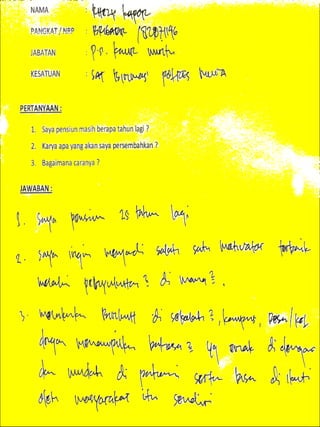 NAMA :
PANGKAT / NRP : BRIGADIR / 82071196
JABATAN : P.S. Kaur Mintu
KESATUAN : SAT Binmas Polres
PERTANYAAN :
1. Saya pensiun masih berapa tahun lagi ?
2. Karya apa yang akan saya persembahkan ?
3. Bagaimana caranya ?
JAWABAN :
1. Saya pensiun 25 tahun lagi
2. Saya ingin menjadi salah satu motivator terbaik
melalui penyuluhan2 di mana2.
3. melakukan Binluh di sekolah2, kampus, Desa/Kel
dengan menampilkan bahasa2 yg enak di dengar
dan mudah di pahami serta bisa di ikuti
oleh masyarakat itu sendiri